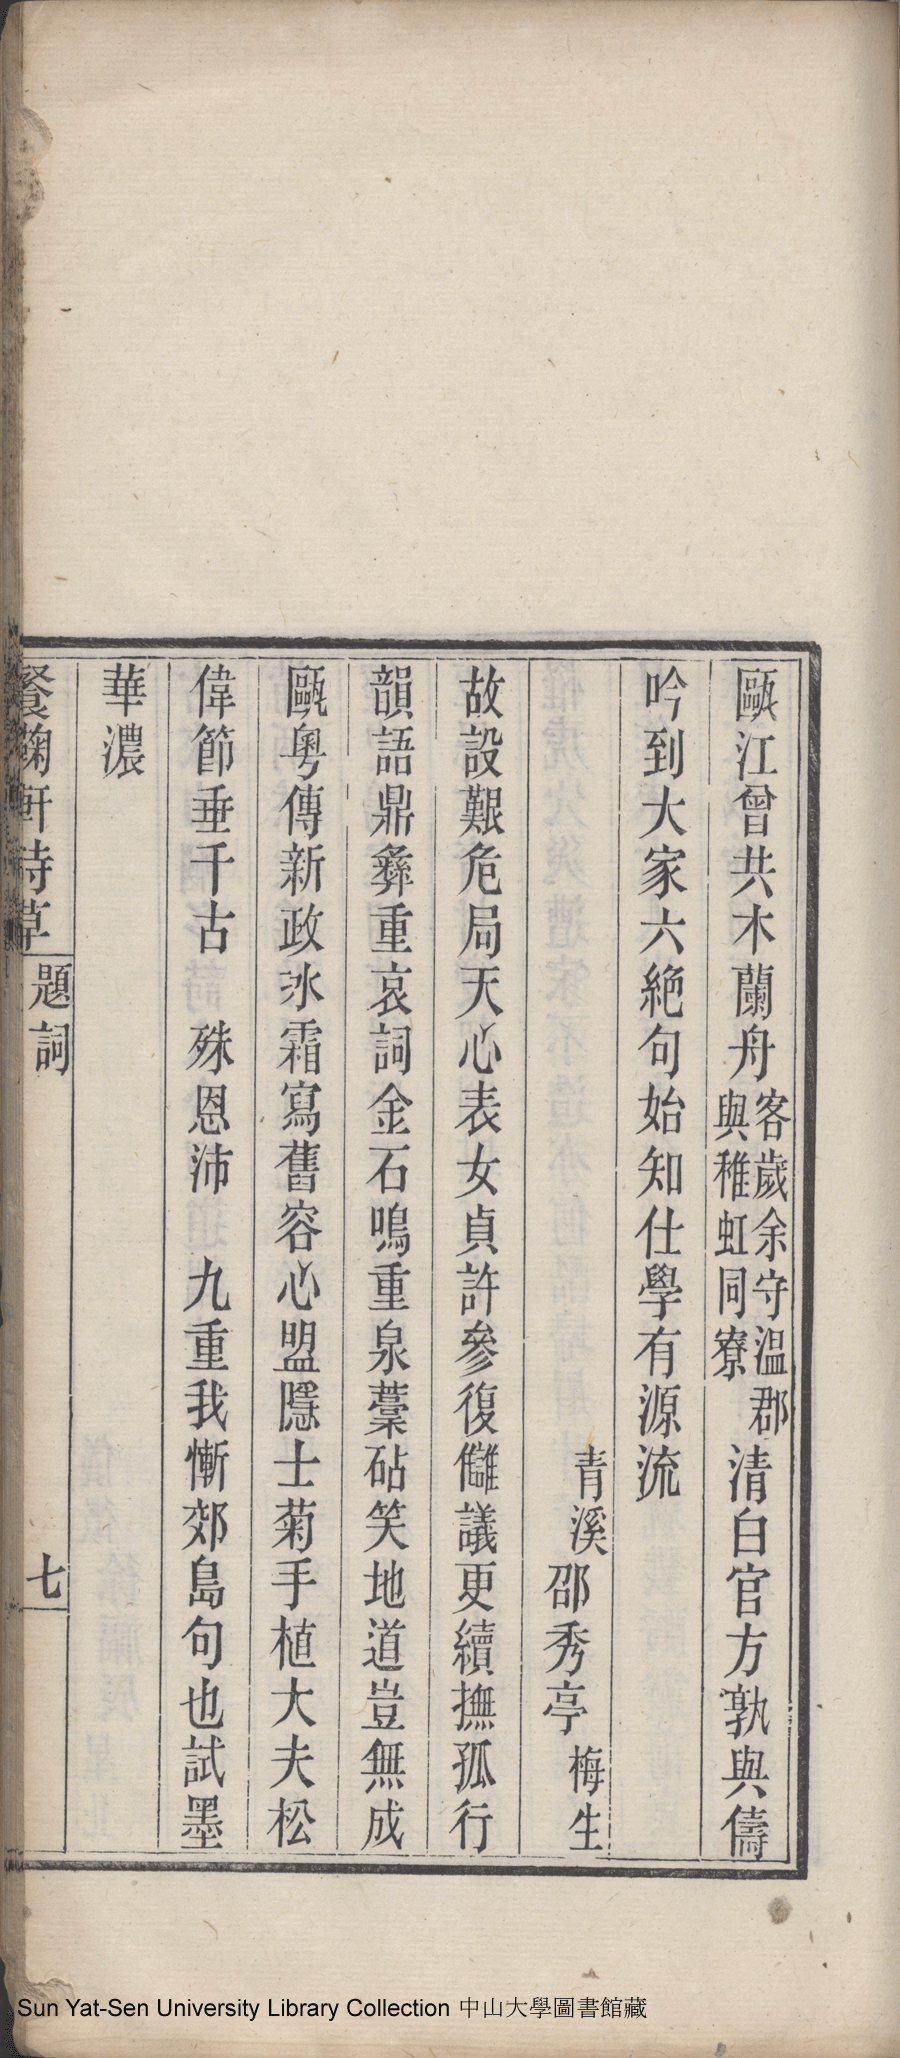 甌江曾共木蘭舟客歲余守溫郡與稚虹同寮清白官方孰與儔
吟到大家六絕句始知仕學有源流
青溪邵秀亭梅生
故設艱危局天心表女貞許參復讎議更續撫孤行
韻語鼎彝重哀詞金石鳴重泉藁砧笑地道豈無成
甌粵傳新政氷霜寫舊容心盟隱士菊手植大夫松
偉節垂千古 殊恩沛 九重我慚郊島句也試墨
華濃
餐菊軒詩草
題詞
七
Sun Yat-Sen University Library Collection 中山大學圖書館藏